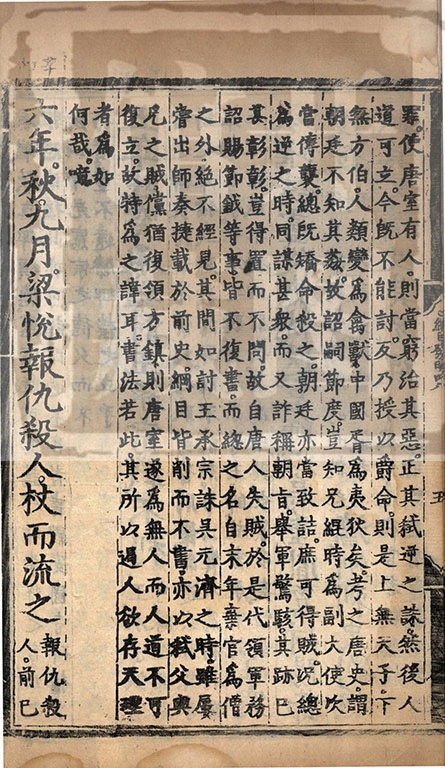 罪。使唐室有人。則當窮治其惡。正其弑逆之誅。然後人
道可立。今旣不能討。反乃授以爵命。則是上無天子。下
無方伯。人類變爲禽獸。中國胥爲夷狄矣。考之唐史。謂
朝廷不知其姦。故詔嗣節度。豈知兄緄時爲副大使。次
當傳襲。總旣矯命殺之。朝廷亦當致詰。庶可得賊。况總
爲逆之時。同謀甚衆。而又詐稱朝旨。舉軍驚駭。其跡已
甚彰彰。豈得置而不問。故自唐人失賊。於是代領軍務
詔賜節鉞等事。皆不復書。而總之名自末年棄官爲僧
之外。絶不經見。其間如討王承宗誅吳元濟之時。雖屢
嘗出師奏捷。載於前史。綱目皆削而不書。亦以弑父與
兄之賊。儻猶復領方鎭。則唐室遂爲無人。而人道不可
復立。故特爲之諱耳。書法若此。其所以遏人欲存天理
者爲如
何哉。噫
六年。秋。九月。梁悅報仇殺人。杖而流之
報仇殺
人。前已